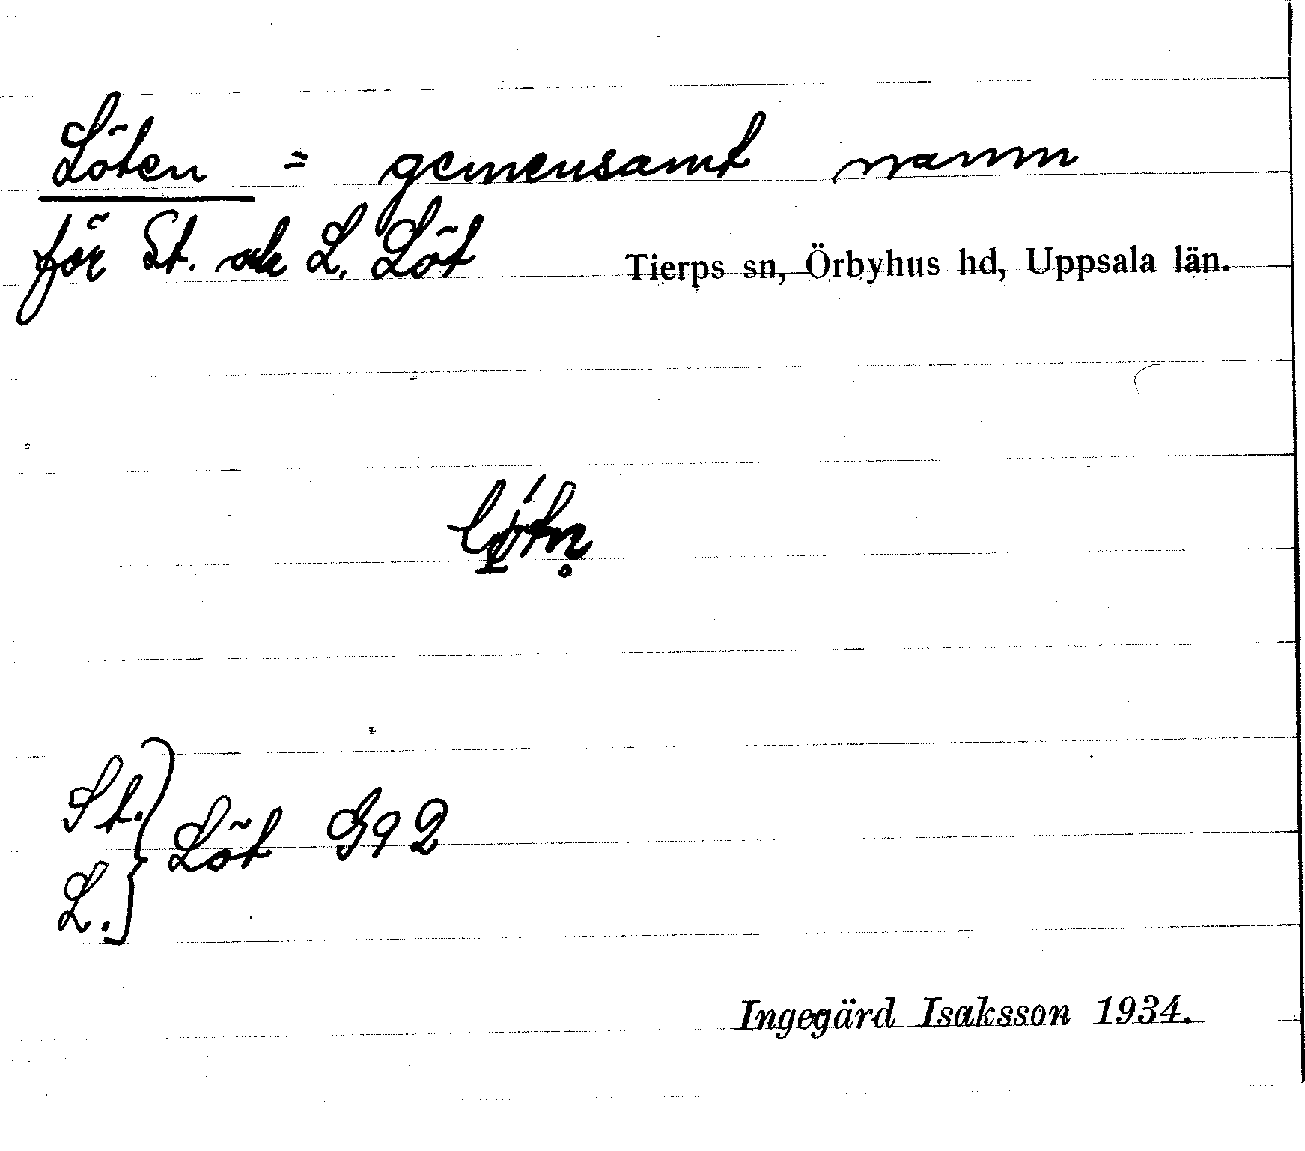 Löten = gemensamt namn
för St. och L. Löt
Tierps sn, Örbyhus hd, Uppsala län.
St. } Löt G92
L.
Ingegärd Isaksson 1934.